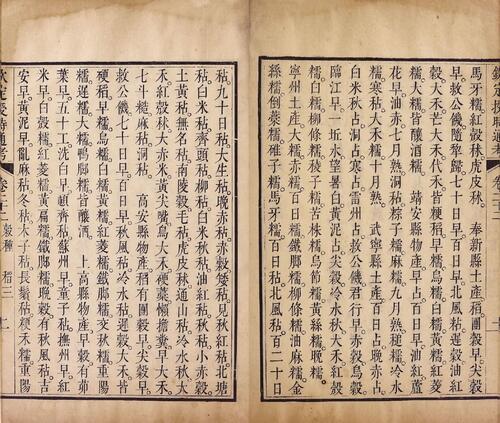 馬牙糯紅殼秫虎皮秫。 奉新縣物產早稻有團穀早尖穀
早救公饑隨犁歸七十日早百日早秋風秥遲穀油紅
穀大禾芒大禾代禾皆粳稻早糯烏糯白糯黃糯紅菱
糯大糯皆釀酒糯。 靖安縣物產早占百日早油紅蘆
花早油赤七月熟洞秥粽子糯麻糯九月熟穤糯冷水
糯寒秥大禾糯十月熟。 武寧縣土產百日占晚赤占
白米秋占洞占寒占雷州占救公饑君行早赤穀烏穀
臨江早一坵水望暑白黃泥占尖穀冷水秋大禾紅殼
糯白糯柳條糯稜子糯苦株糯烏節糯黃絲糯晚糯。
寧州土產大禾糯赤糯百日糯鐵脚糯柳條糯油麻糯金
絲糯倒藁糯稚子糯馬牙糯百日秥北風秥百二十日
秥九十日秥大生秥晚赤秥赤穀矮秥見秋紅秥北塘
秥白米秥齊頭秥柳秥白米秋秥油紅秥秋秥小赤穀
土黃秥無名秥南陵穀毛秥虎皮秥通山秥冷水秋大
禾紅殼秫大赤米黃尖嘴烏大禾硬藁懶擔糞早大禾
七斗糙麻秥洞秥。 高安縣物產稻有團穀早尖穀早
救公饑七十日早百日早秋風秥冷水秥遲穀大禾皆
硬稻早糯烏糯白糯黃糯紅菱糯鐵脚糯交秋糯重陽
糯遲糯大糯鴨脚糯皆釀酒。 上高縣物產早穀有茆
葉早五十工洗白早頓齊秥蘇州早童子秥撫州早紅
米早白殼糯紅菱糯黃扁糯鐵脚糯晚穀有秋風秥吉
安早黃泥早亂麻秥冬秥太子秥長鬚秥稉禾糯重陽
欽定授時通考 卷二十二 穀種 稻三